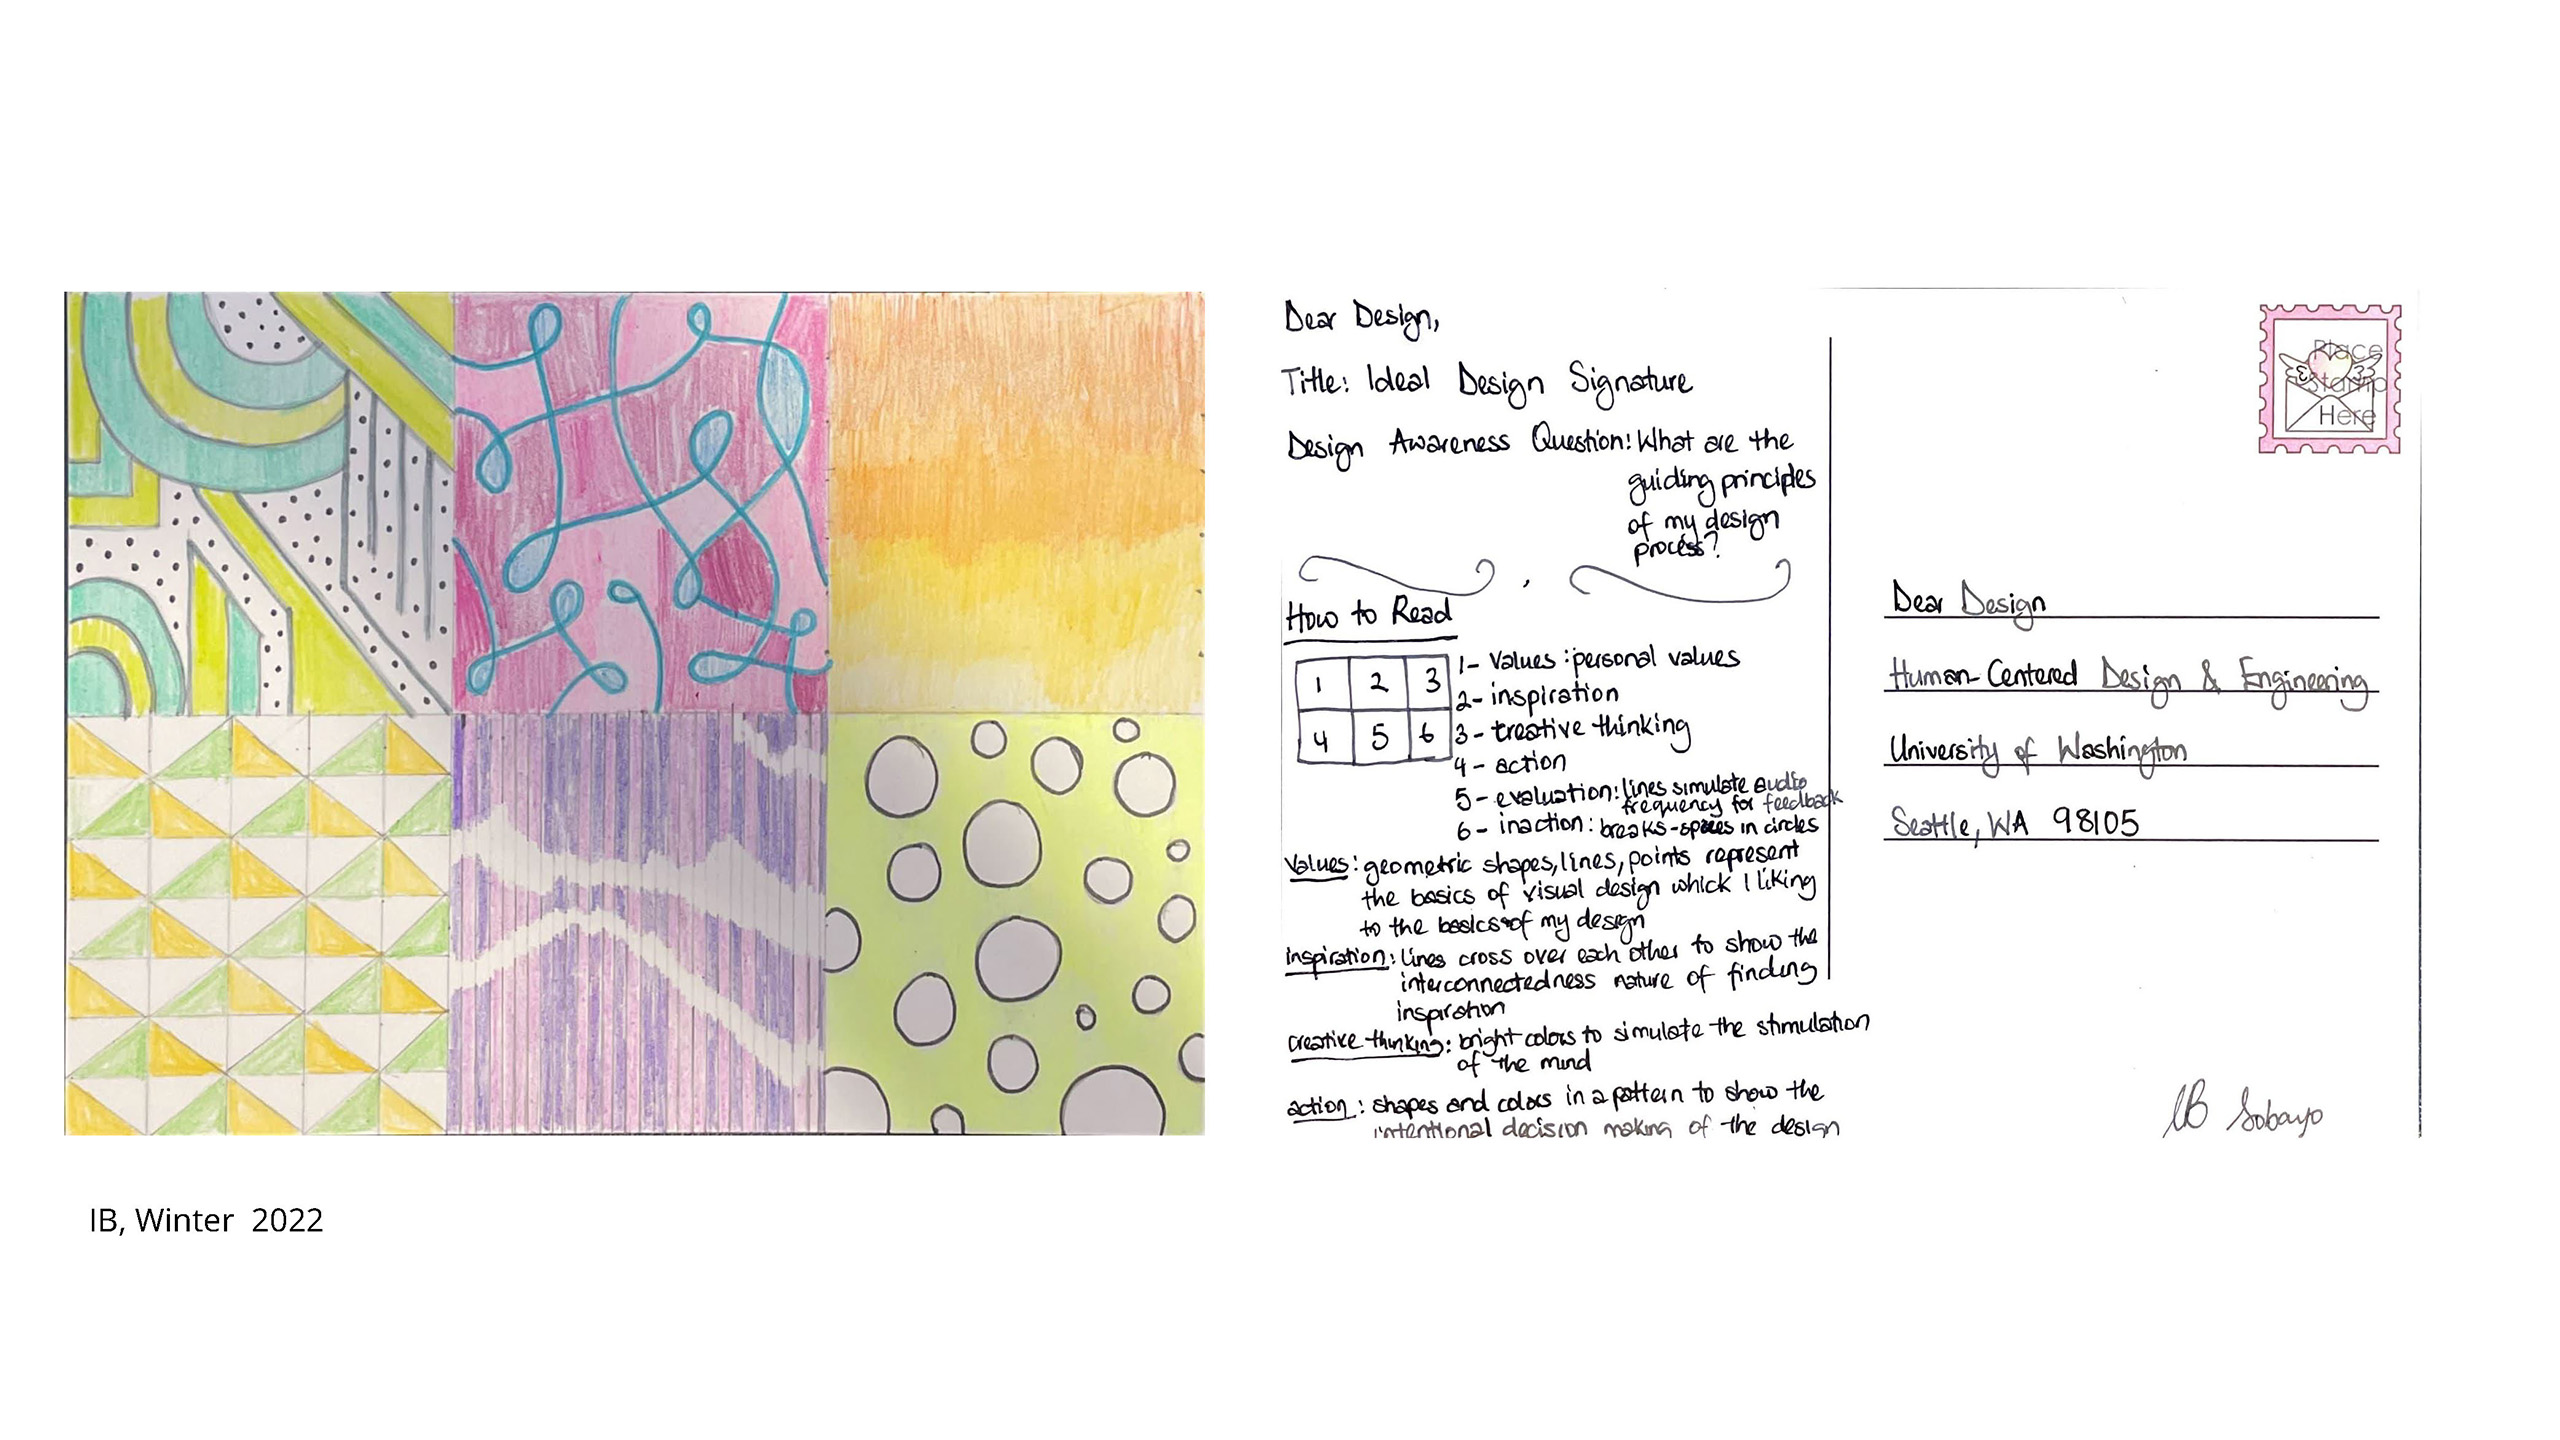 Dear Design,
Title: Ideal Design Signature
Design Awareness Question: What are the
guiding principles
of my design
process?
How to Read
1 2 3
4 5 6
1- Values: personal values
2- inspiration
3- creative thinking
4- action
5- evaluation: lines simulate audio
frequency for feedback
6- inaction: breaks-spaces in circles
Values: geometric shapes, lines, points represent
the basics of visual design which I liking
to the basics of my design
inspiration: lines cross over each other to show the
interconnectedness nature of finding
inspiration
creative thinking: bright colors to simulate the stimulation
of the mind
action: shapes and colors in a pattern to show the
intentional decision making of the design
Place
Stamp
Here
Dear Design
Human-Centered Design & Engineering
University of Washington
Seattle, WA 98105
IB Sobayo
IB, Winter 2022